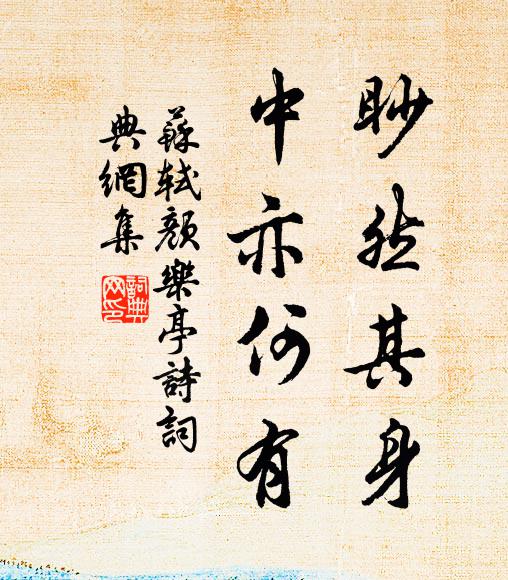 眇然其身
中亦何有
蘇軾顏樂亭詩詞
典網集
詞典网印